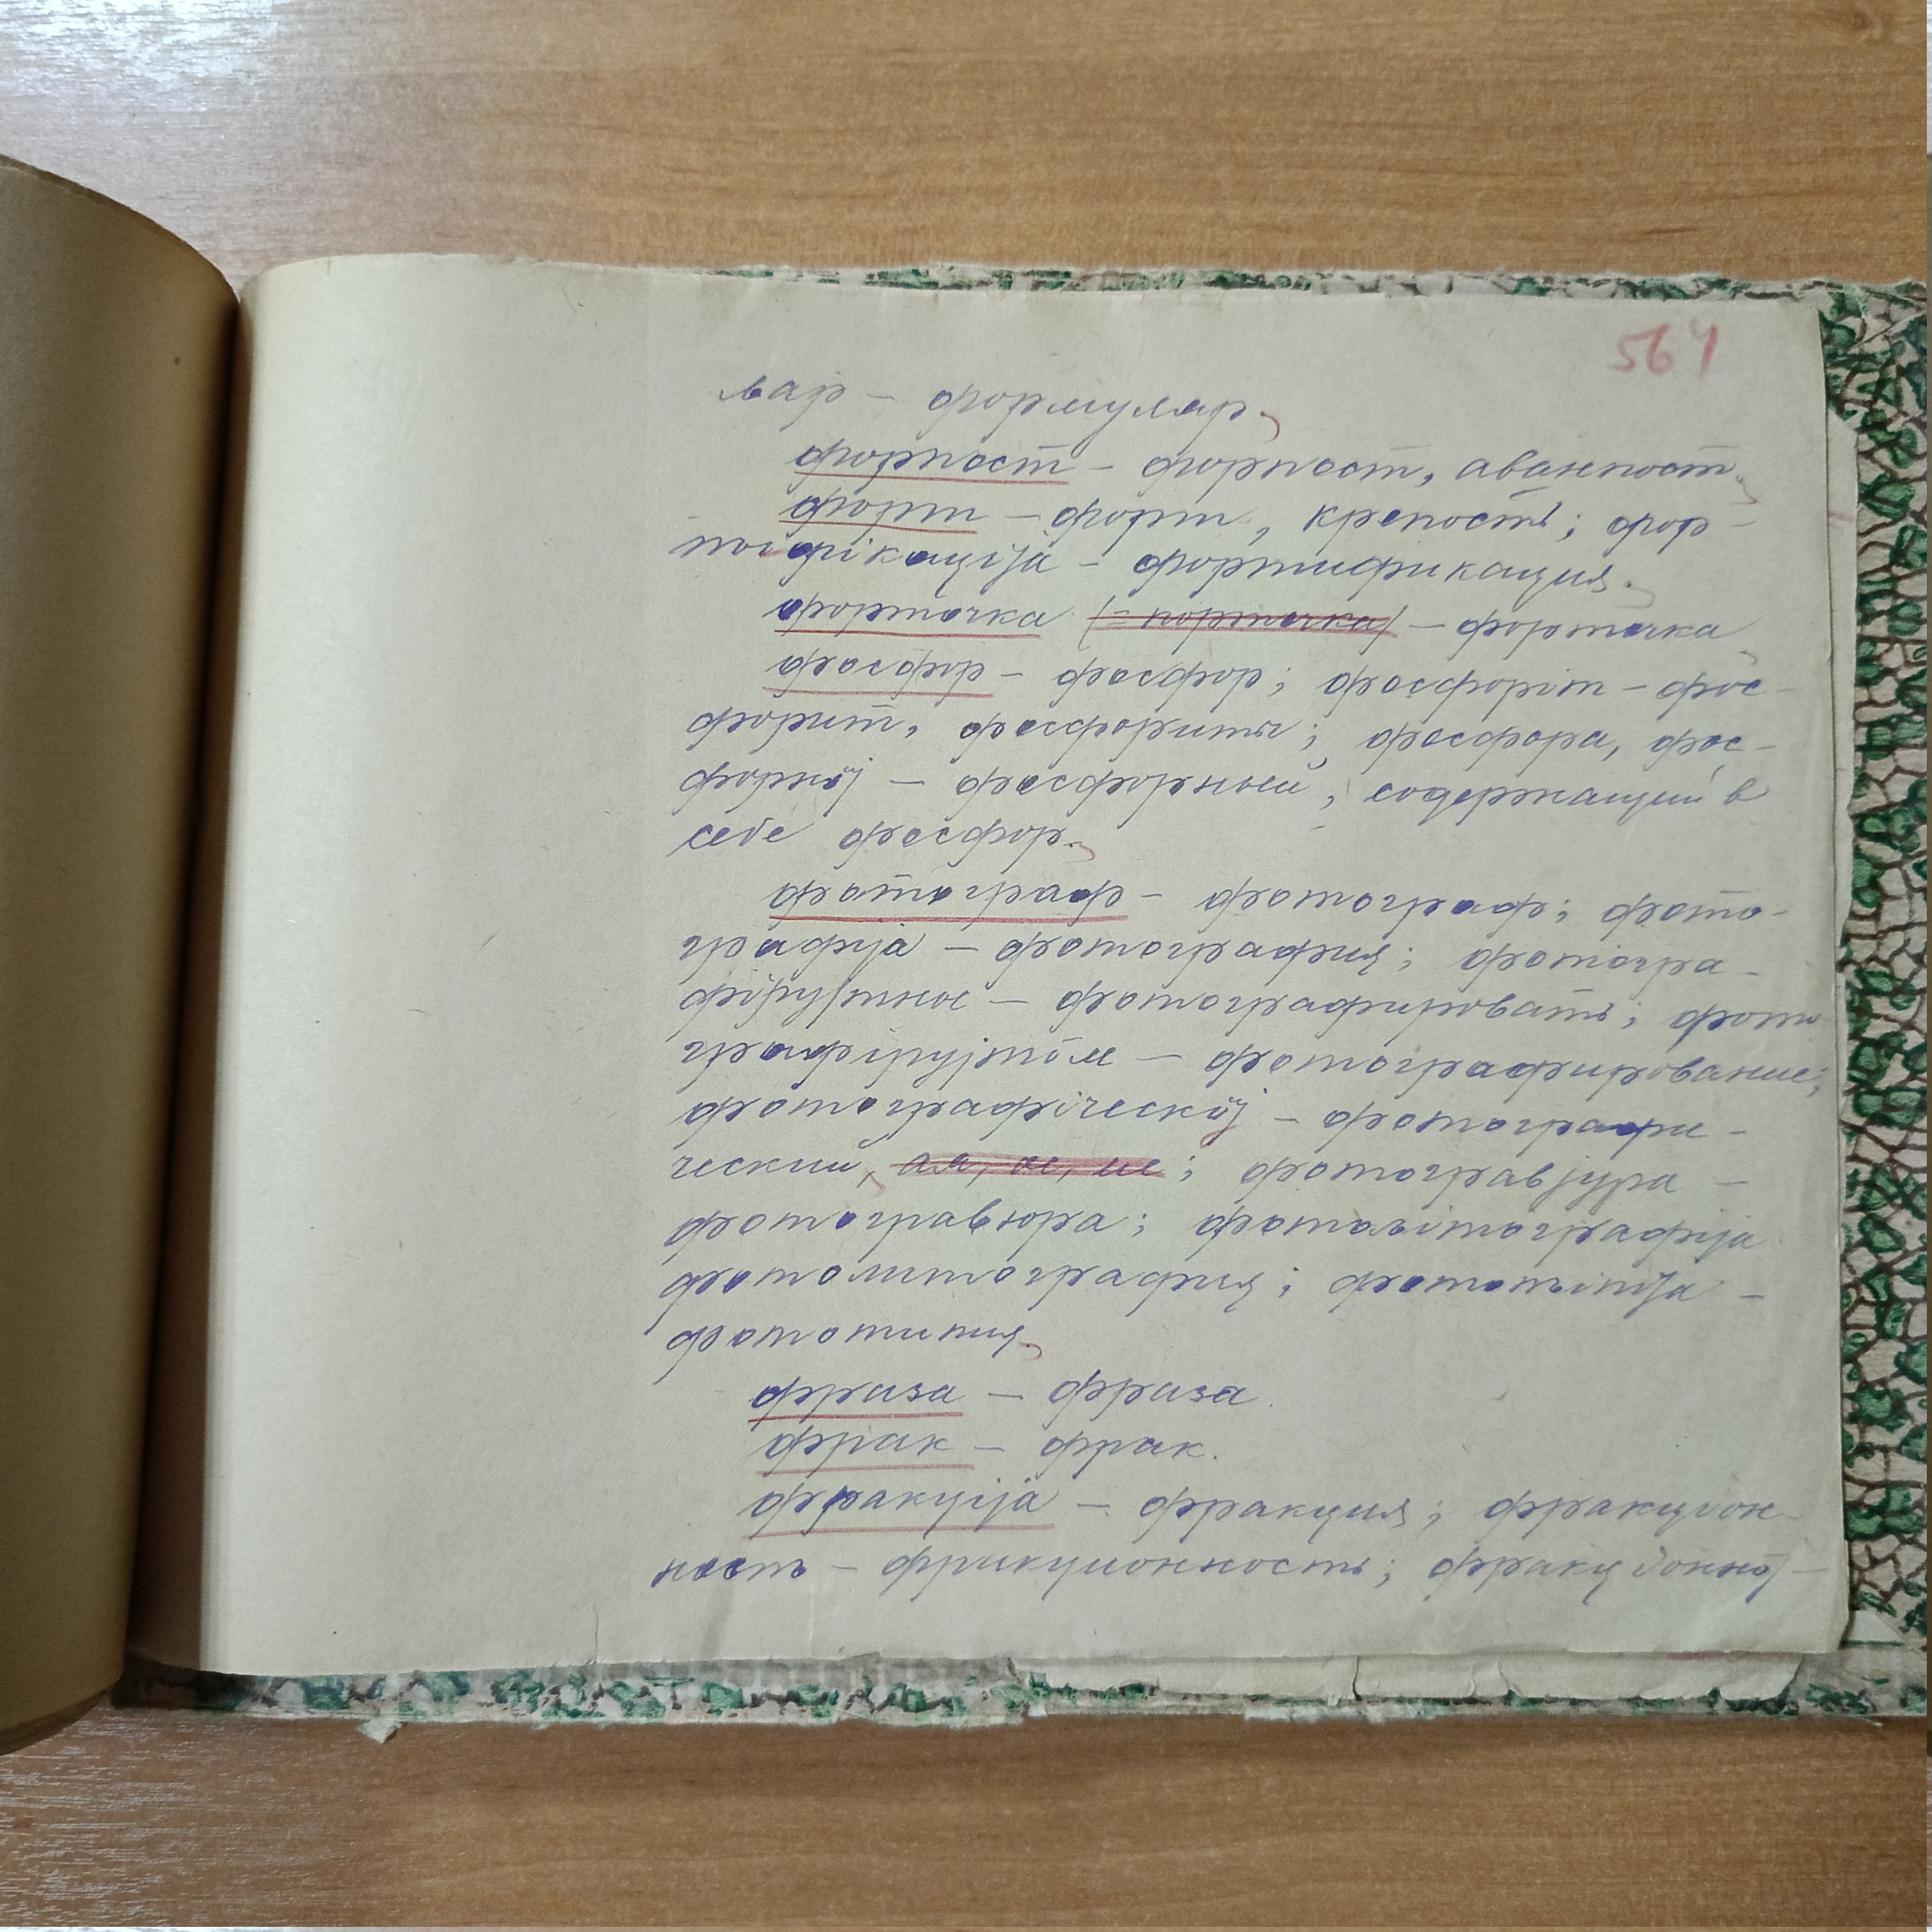 564
лар – формуляр.
форпост – форпост, аванпост.
форт – форт, крепость; фор-
тіфікаціја – фортификация.
форточка (= порточка) – форточка
фосфор – фосфор; фосфоріт – фос-
форит, фосфориты; фосфора, фос-
форнӧј – фосфорный, содержащий в
себе фосфор.
фотограф – фотограф; фото-
графіја – фотография; фотогра-
фірујтны – фотографировать; фото-
графірујтӧм – фотографирование;
фотографіческӧј – фотографи-
ческий, ая, ое, ие; фотогравјура –
фотогравюра; фотолітографіја
фотолитография; фототіпіја –
фототипия.
фраза – фраза.
фрак – фрак.
фракціја – фракция; фракціон-
ность – фракционность; фракціоннӧј –